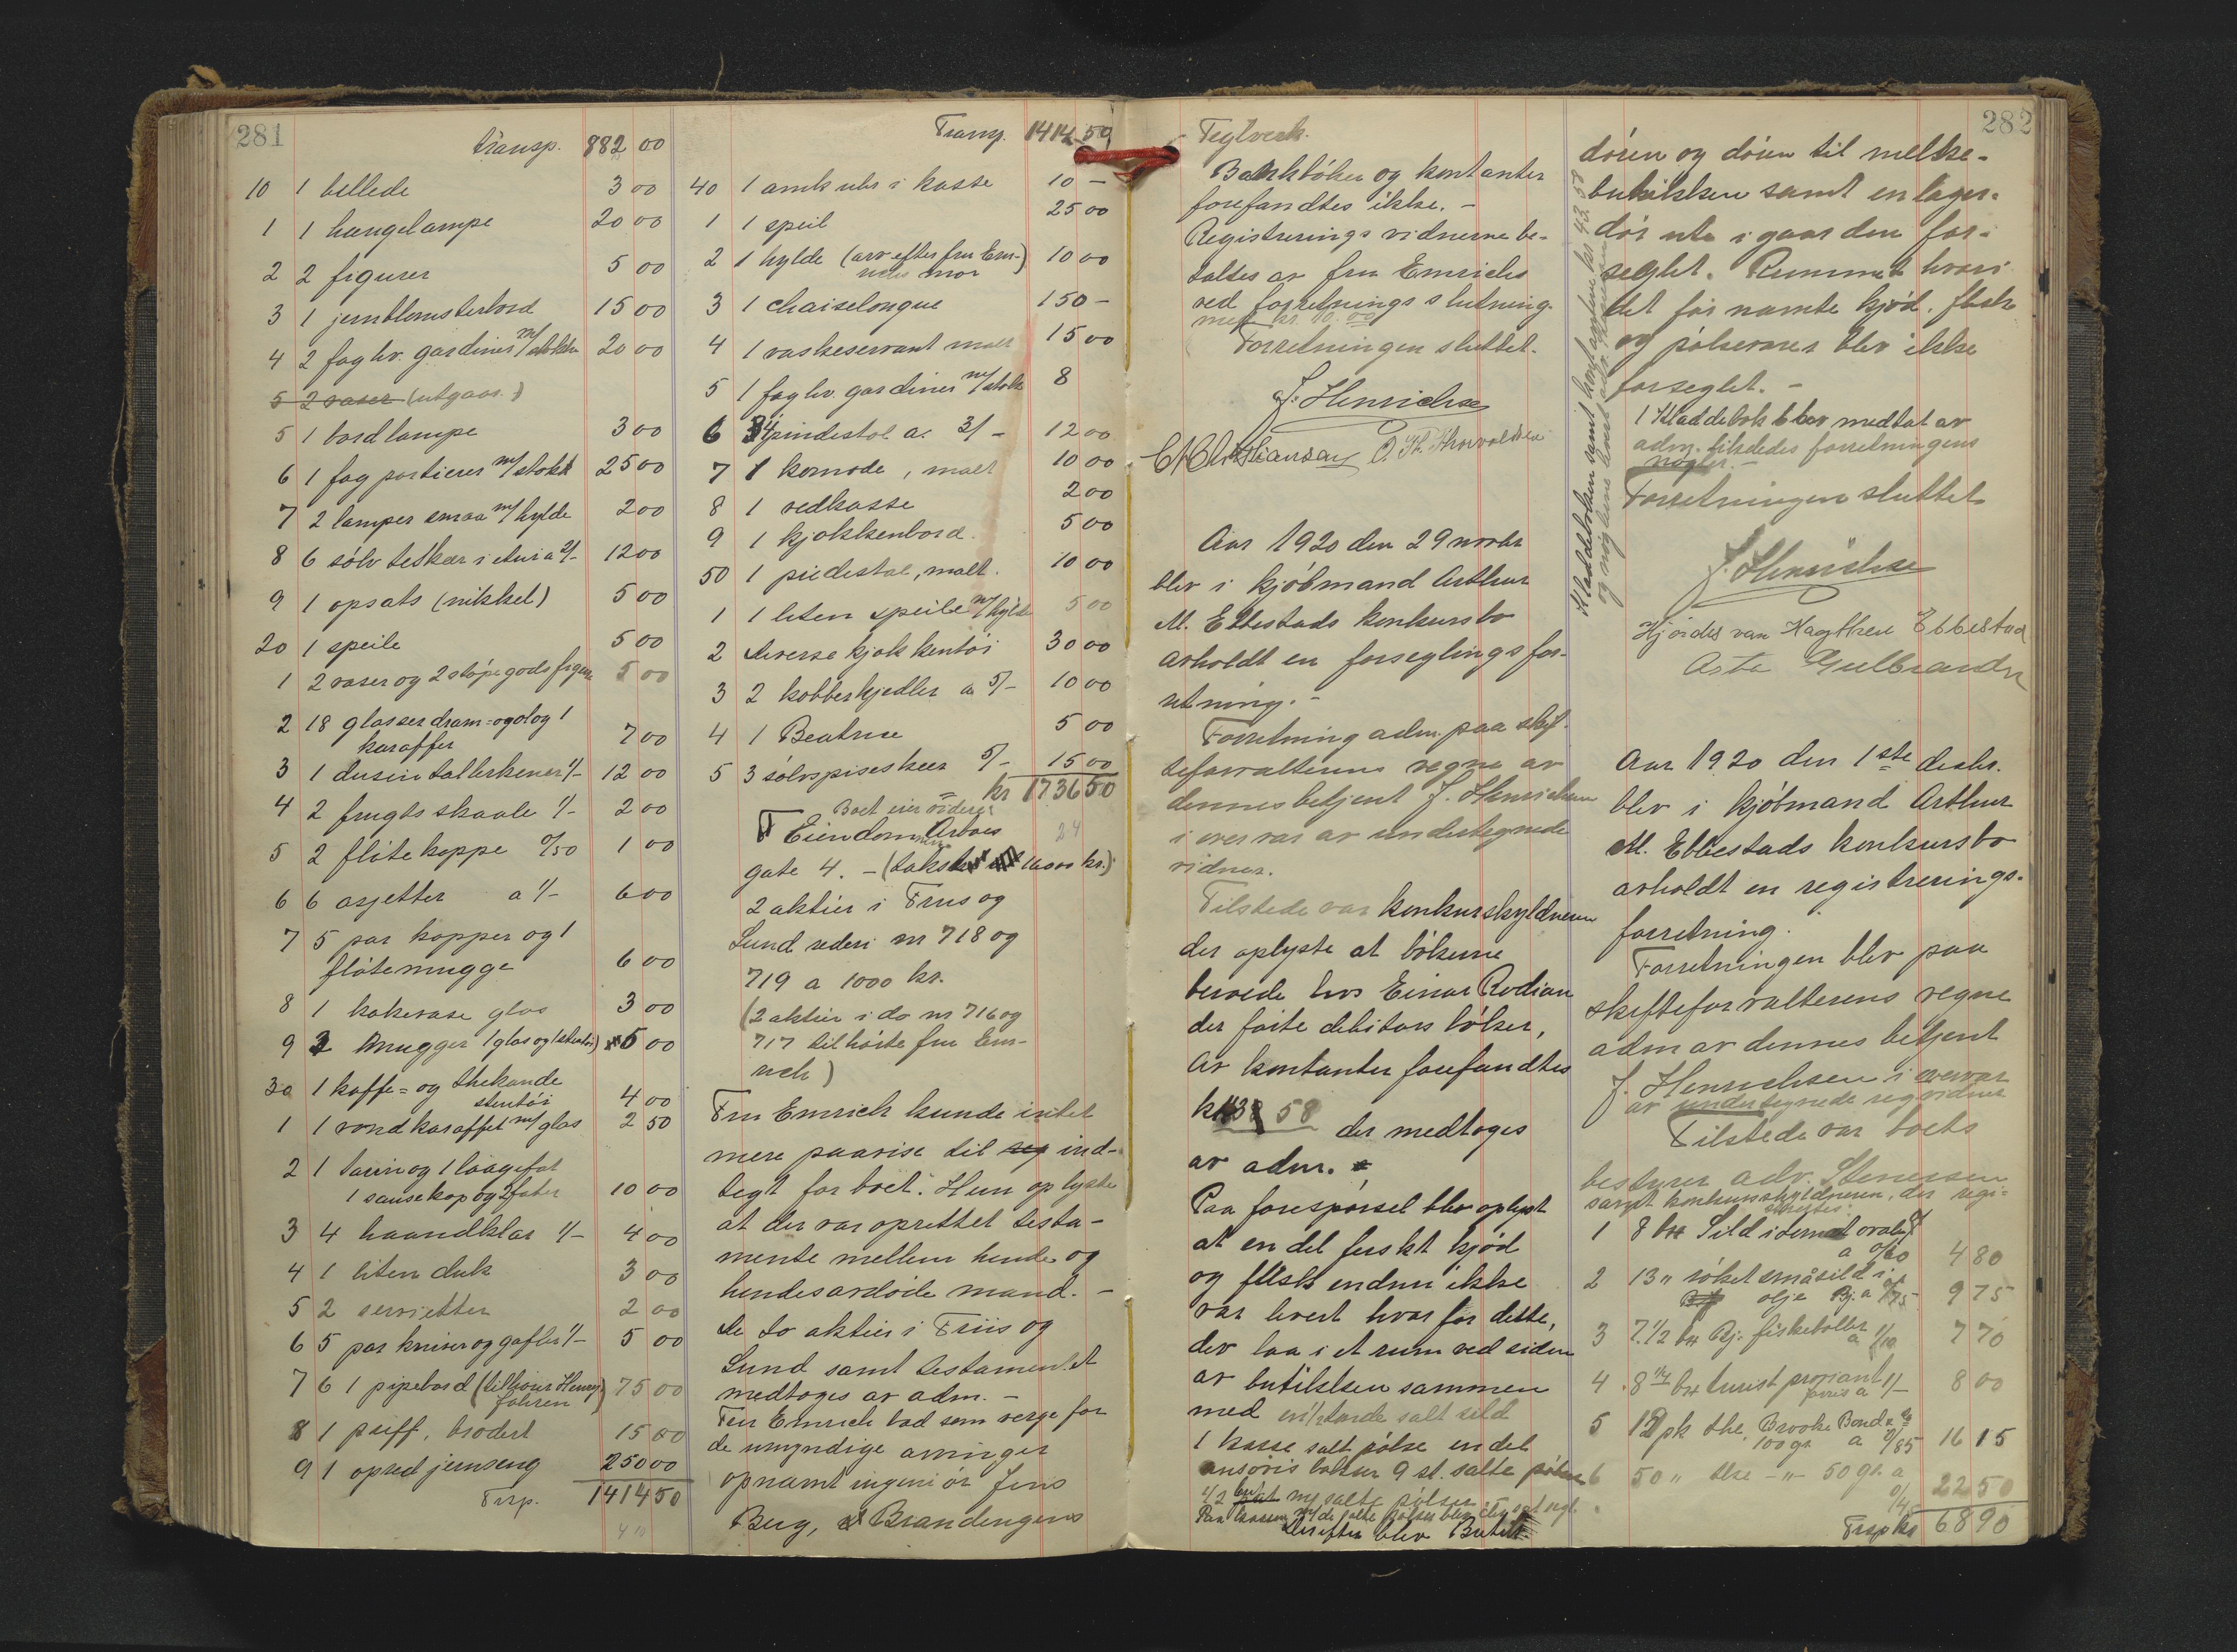 281
Transp. 882 00
10 1 billede 3 00
1 1 hængelampe 20 00
2 2 figurer 5 00
3 1 jernblomsterbord 15 00
4 2 fag hv. gardiner m/ stokke 20 00
5 2 vaser (utgaar.)
5 1 bordlampe 3 00
6 1 fag portierer m/ stokk 25 00
7 2 lamper smaa m/ hylde 2 00
8 6 sølv teskeer i etui a 2/- 12 00
9 1 opsats (nikkel) 5 00
20 1 speile 5 00
1 2 vaser og 2 støpegods figurer 5 00
2 18 glasser dram- og øl og 1
karaffer 7 00
3 1 dusin tallerkener 1/- 12 00
4 2 frugtsskaale 1/- 2 00
5 2 fløtekoppe 0/50 1 00
6 6 asjetter a 1/- 6 00
7 5 par kopper og 1
fløtemugge 6 00
8 1 kakevase glas 3 00
9 2 mugger 1 glas og 1 stentøi) 5 00
30 1 kaffe= og thekande
stentøi 4 00
1 1 vandkaraffel m/ glas 2 50
2 1 terrin og 1 laagefat
1 sausekop og 2 fater 10 00
3 4 haandklær 1/- 4 00
4 1 liten duk 3 00
5 2 servietter 2 00
6 5 par kniver og gafler 1/- 5 00
7 6 1 pipebord (tilhører Henry 75 00
8 1 puff, brodert 15 00
9 1 opred jernseng 250 00
Trsp. 1414 50
Transp. 1414 50
40 1 amk uhr i kasse 10 -
1 1 speil 25 00
2 1 hylde (arv efter fru Em-
richs mor) 10 00
3 1 chaiselongue 150 -
4 1 vaskeservant malt 15 00
5 1 fag hv. gardiner m/ stokk 8
6 4 pindestol a. 3/- 12 00
7 1 komode, malt 10 00
8 1 vedkasse 2 00
9 1 kjøkkenbord. 5 00
50 1 piedestal, malt. 10 00
1 1 liten speile m/ hylde 5 00
2 Diverse kjøkkentøi 30 00
3 2 kobberkjedler a 5/- 10 00
4 1 Beatrice 5 00
5 3 sølvspiseskeer 5/- 15 00
kr 1736 50
Boet eier videre:
Eiendommen Arbos
gate 4. - (takst 16000 kr.)
2 aktier i Friis og
Lund rederi nr 718 og
719 a 1000 kr.
(2 aktier i do nr 716 og
717 tilhørte fru Em-
rich)
Fru Emrich kunde intet
mere paavise til ind-
tegt for boet. Hun oplyste
at der var oprettet testa-
mente mellem hende og
hendes avdøde mand. -
De to aktier i Friis og
Lund samt testamentet
medtoges av adm. -
Fru Emrich bad som verge for
de umyndige arvinger
opnævnt ingeniør Jens
Berg, Brandengens
Teglverk.
Bankbøker og kontanter
forefandtes ikke. -
Registreringsvidnerne be-
taltes av fru Emrich
ved forretningsslutning.
med kr. 10.00
Forretningen sluttet.
J. Henrichsen
O. Th. Thorvaldsen
Aar 1920 den 29 novbr
blev i kjøbmand Arthur
M. Ebbestads konkursbo
avholdt en forseglingsfor-
retning. -
Forretning adm. paa skif-
teforvalterens vegne av
dennes betjent J. Henrichsen
i overvær av undertegnede
vidner.
Tilstede var konkursskyldneren
der oplyste at bøkerne
beroede hos Einar Rodian
der førte debitors bøker,
Av kontanter forefandtes
58 der medtoges
av adm.
Paa forespørsel blev oplyst
at en del ferskt kjød
og flesk endnu ikke
var levert hvorfor dette,
der laa i et rum ved siden
av butikken sammen
med en 1/2 tønde salt sild
1 kasse salt pølse en del
ansjovis bokser 9 st. salte pølser
1/2 m/ salte pølser
Derefter blev Butik
Kladdeboken samt kontanten kr 43.58
282
døren og døren til melke-
butikken samt en lager-
dør ute i gaarden for-
seglet. Rummet hvori
det før nævnte kjød, flesk
og pølserne blev ikke
forseglet. -
1 Kladdebok blev medtat av
adm. tilstededes forretningens
nøgler. -
Forretningen sluttet
J. Henrichsen
Hjørdis van Ebbestad
Asta Gulbrandsen
Aar 1920 den 1ste decbr.
blev i kjøbmand Arthur
M. Ebbestads konkursbo
avholdt en registrerings-
forretning.
Forretningen blev paa
skifteforvalterens vegne
adm av dennes betjent
J. Henrichsen i overvær
av undertegnede reg vidner
Tilstede var boets
bestyrer adv. Stenersen
samt konkursskyldneren, der regi=
strertes:
1 8 bx Sild i tomat ovale
a 0/60 4 80
2 13 " røket småsild i
olje Bj. a 0/75 9 75
3 7 1/2 bx Bj. fiskeboller a 1/10 7 70
4 8 1/1 bx turist proviant a 1/- 8 00
5 19 pk the, Brooke Bond & Co
100 gr. a 0/85 16 15
6 50 " the -"- 50 gr. a
0/45 22 50
Trsp kr 68 90